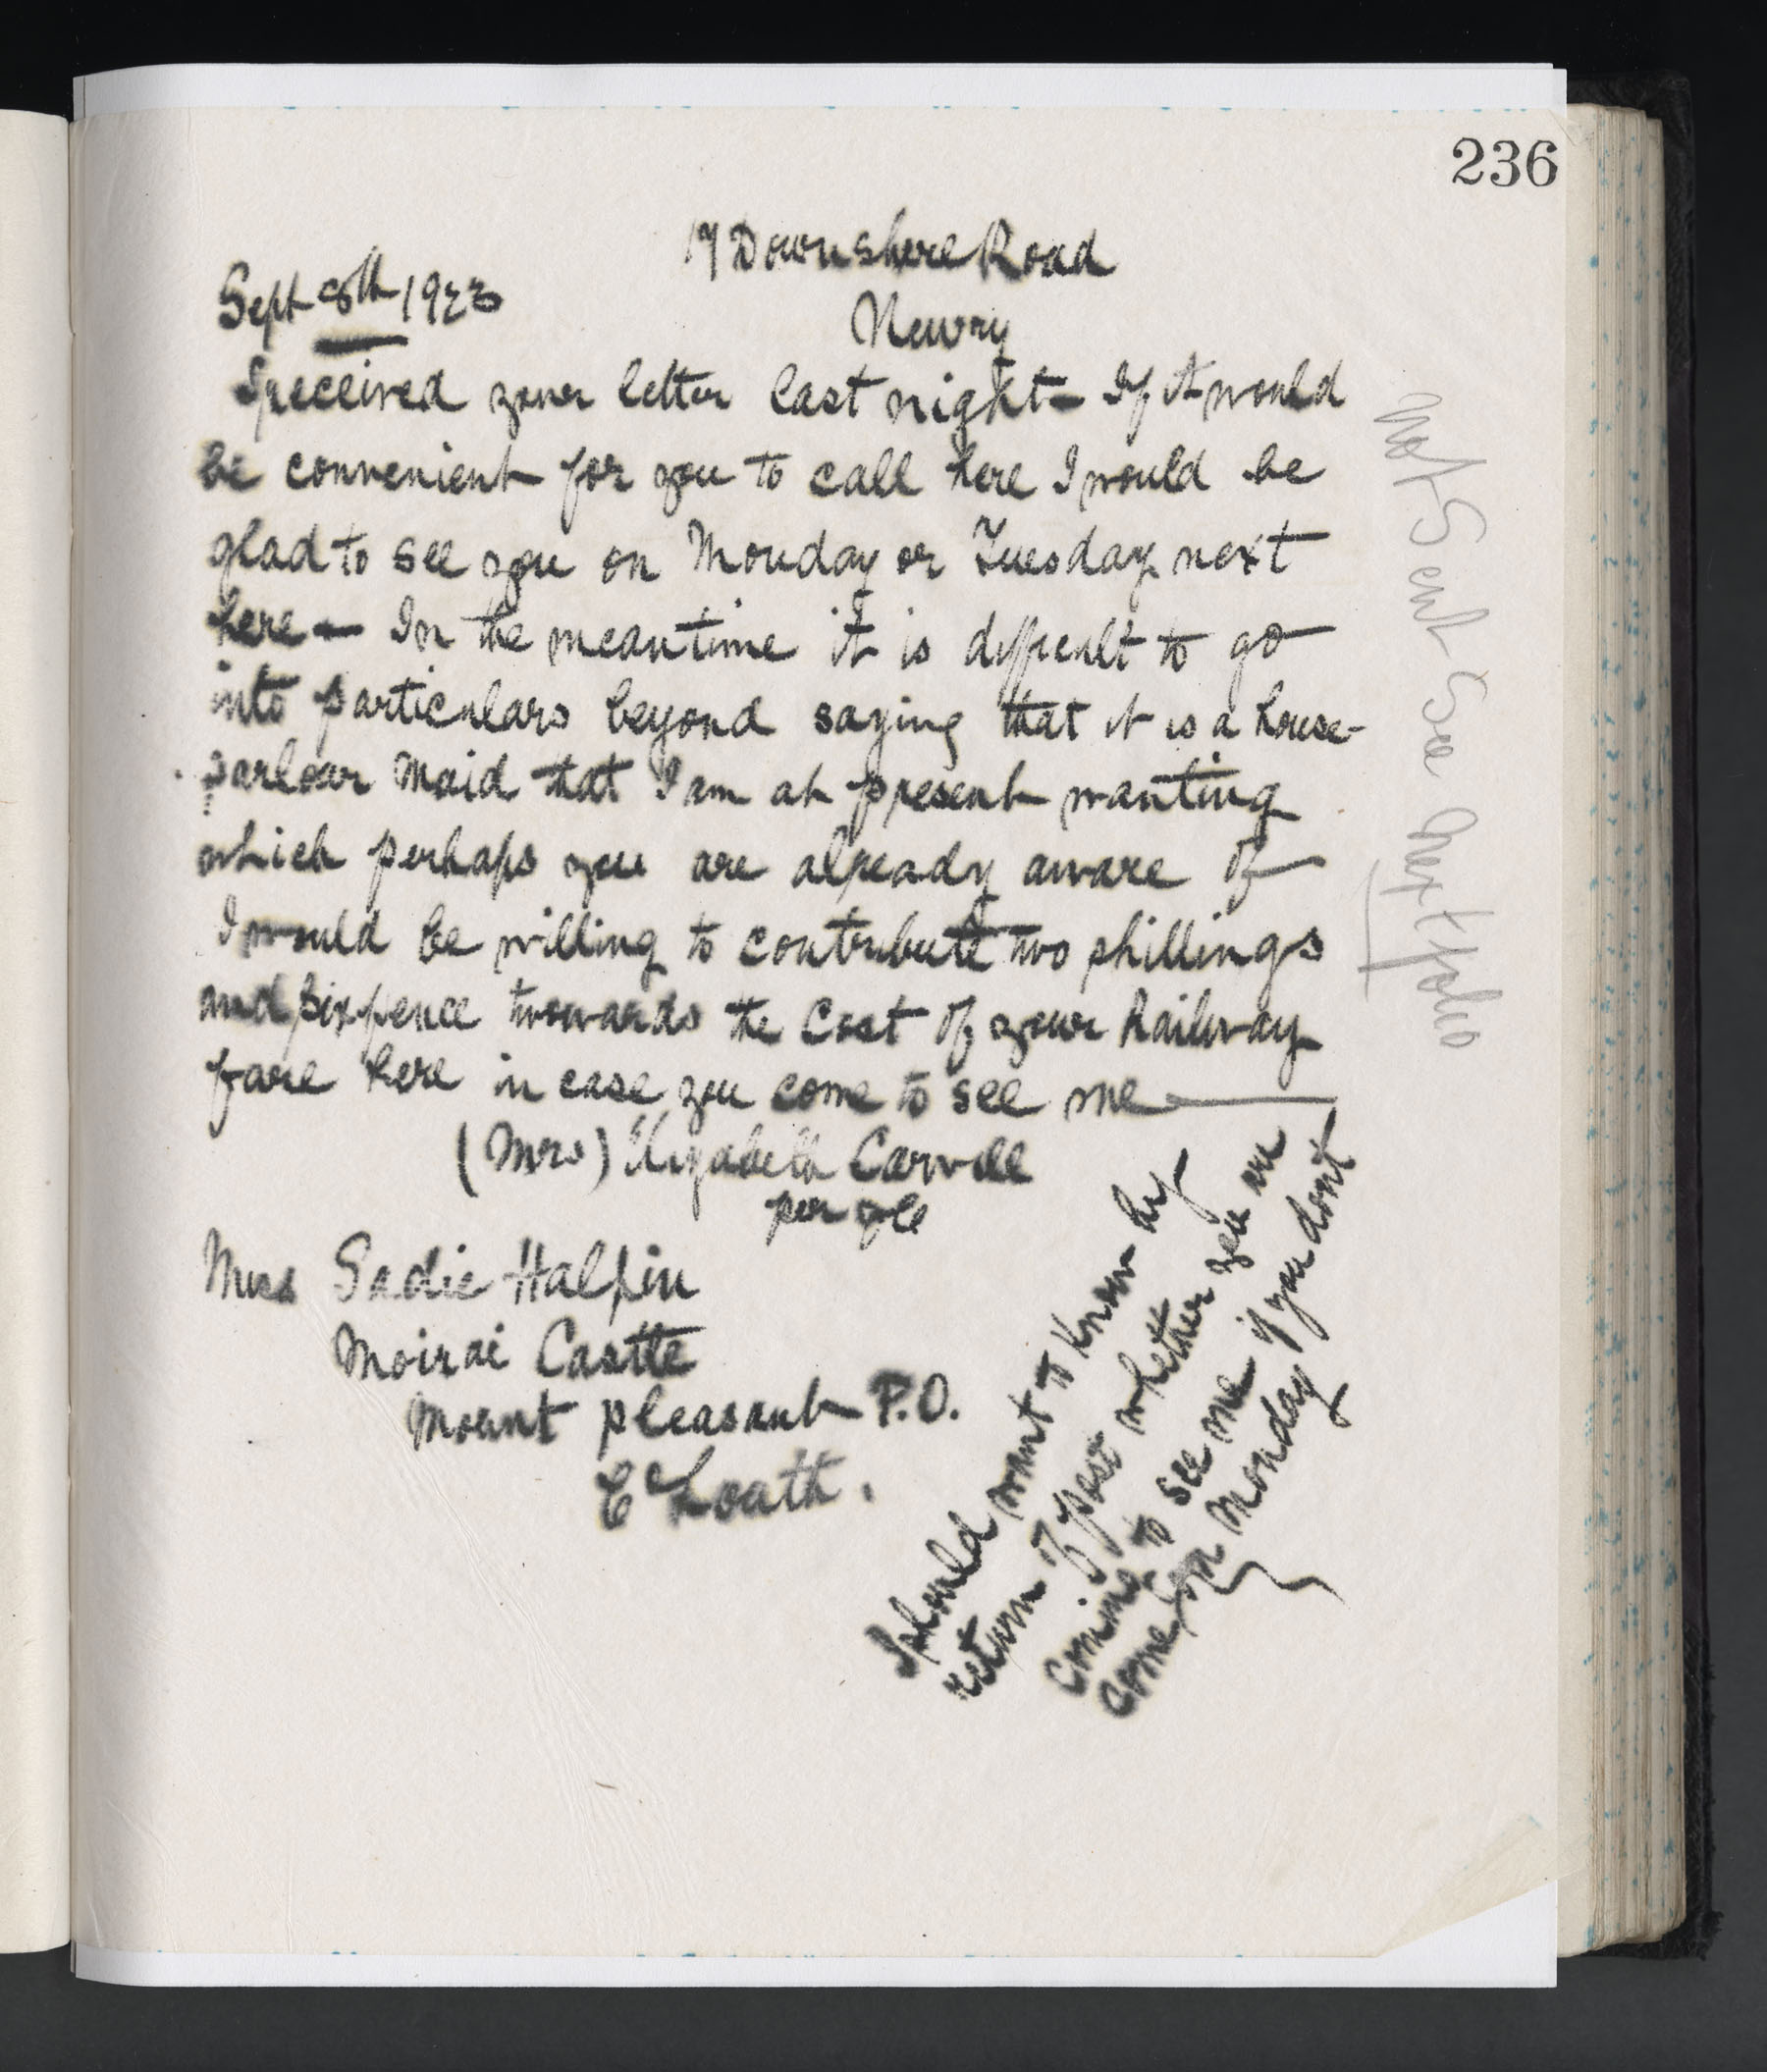 236
17 Downshire Road
Sept 8th 1923
Newry
I received your letter last night — If it would
be convenient for you to call here I would be
glad to see you on Monday or Tuesday next
here — In the meantime it is difficult to go
into particulars beyond saying that it is a house-
parlour maid that I am at present wanting
which perhaps you are already aware of
I would be willing to contribute two shillings
and sixpence towards the cost of your Railway
fare here in case you come to see me —
(Mrs) Elizabeth Carvill
per
Miss Sadie Halpin
Moirai Castle
Mount pleasant P.O.
Co Louth.
I should want to know by
return of post whether you are
coming to see me if you dont
come on Monday
Not Sent See next folio